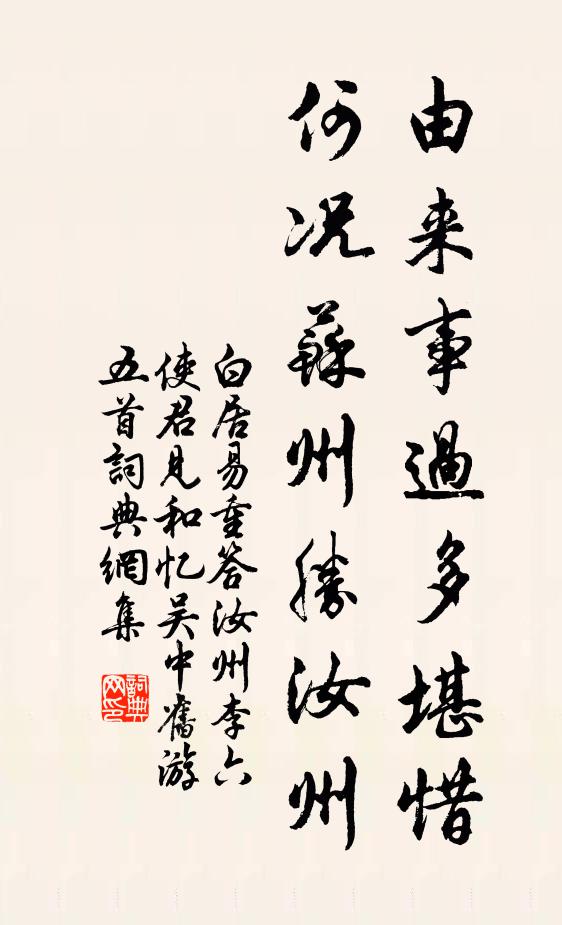 由来事過多堪惜
何况蘇州勝汝州
白居易重答汝州李六
使君見和忆吴中舊游
五首詞典網集
詞典網印